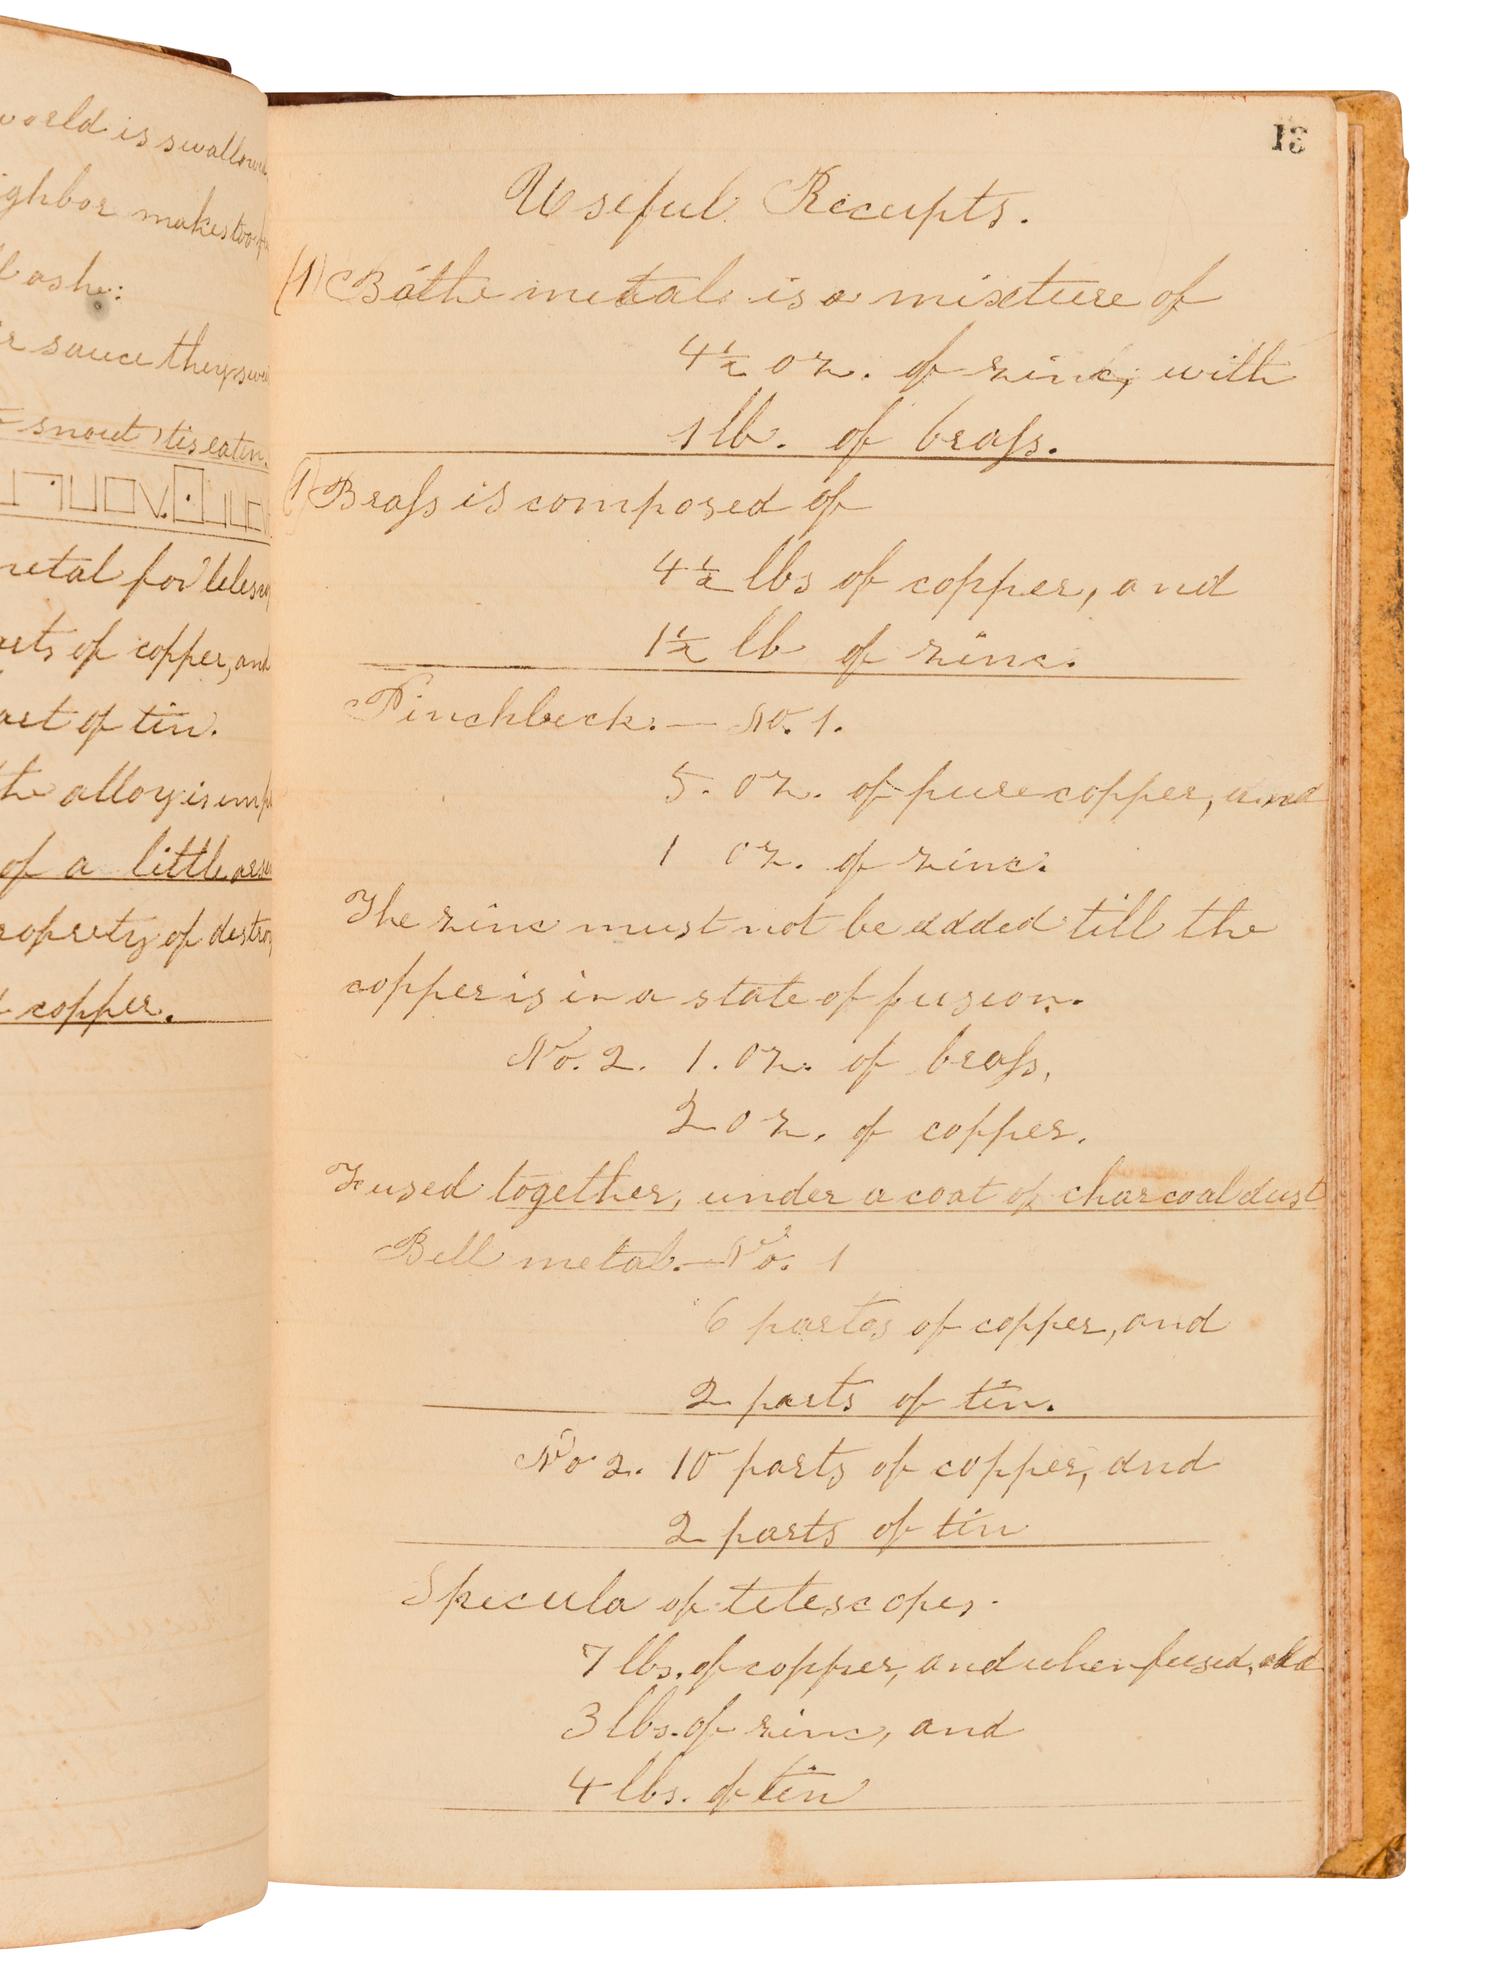 world is swallow
ighbor makes too
l ash:
r sauce they sw
snout 'tis eaten.
metal for teles
arts of copper, and
art of tin.
the alloy is imp
of a little arse
roperty of destroy
copper.
13
Useful Receipts.
(1) Bathe metal is a mixture of
4½ oz. of zinc, with
1 lb. of braſs.
(1) Braſs is composed of
4½ lbs of copper, and
1½ lb of zinc.
Pinchbeck. — No. 1.
5. oz. of pure copper, and
1 oz. of zinc.
The zinc must not be added till the
copper is in a state of fusion.
No. 2. 1. oz. of braſs,
2 oz. of copper.
Fused together, under a coat of charcoal dust
Bell metal. — No. 1
6 partes of copper, and
2 parts of tin.
No 2. 10 parts of copper, and
2 parts of tin
Specula of telescopes.
7 lbs. of copper, and when fused, add
3 lbs. of zinc, and
4 lbs. of tin